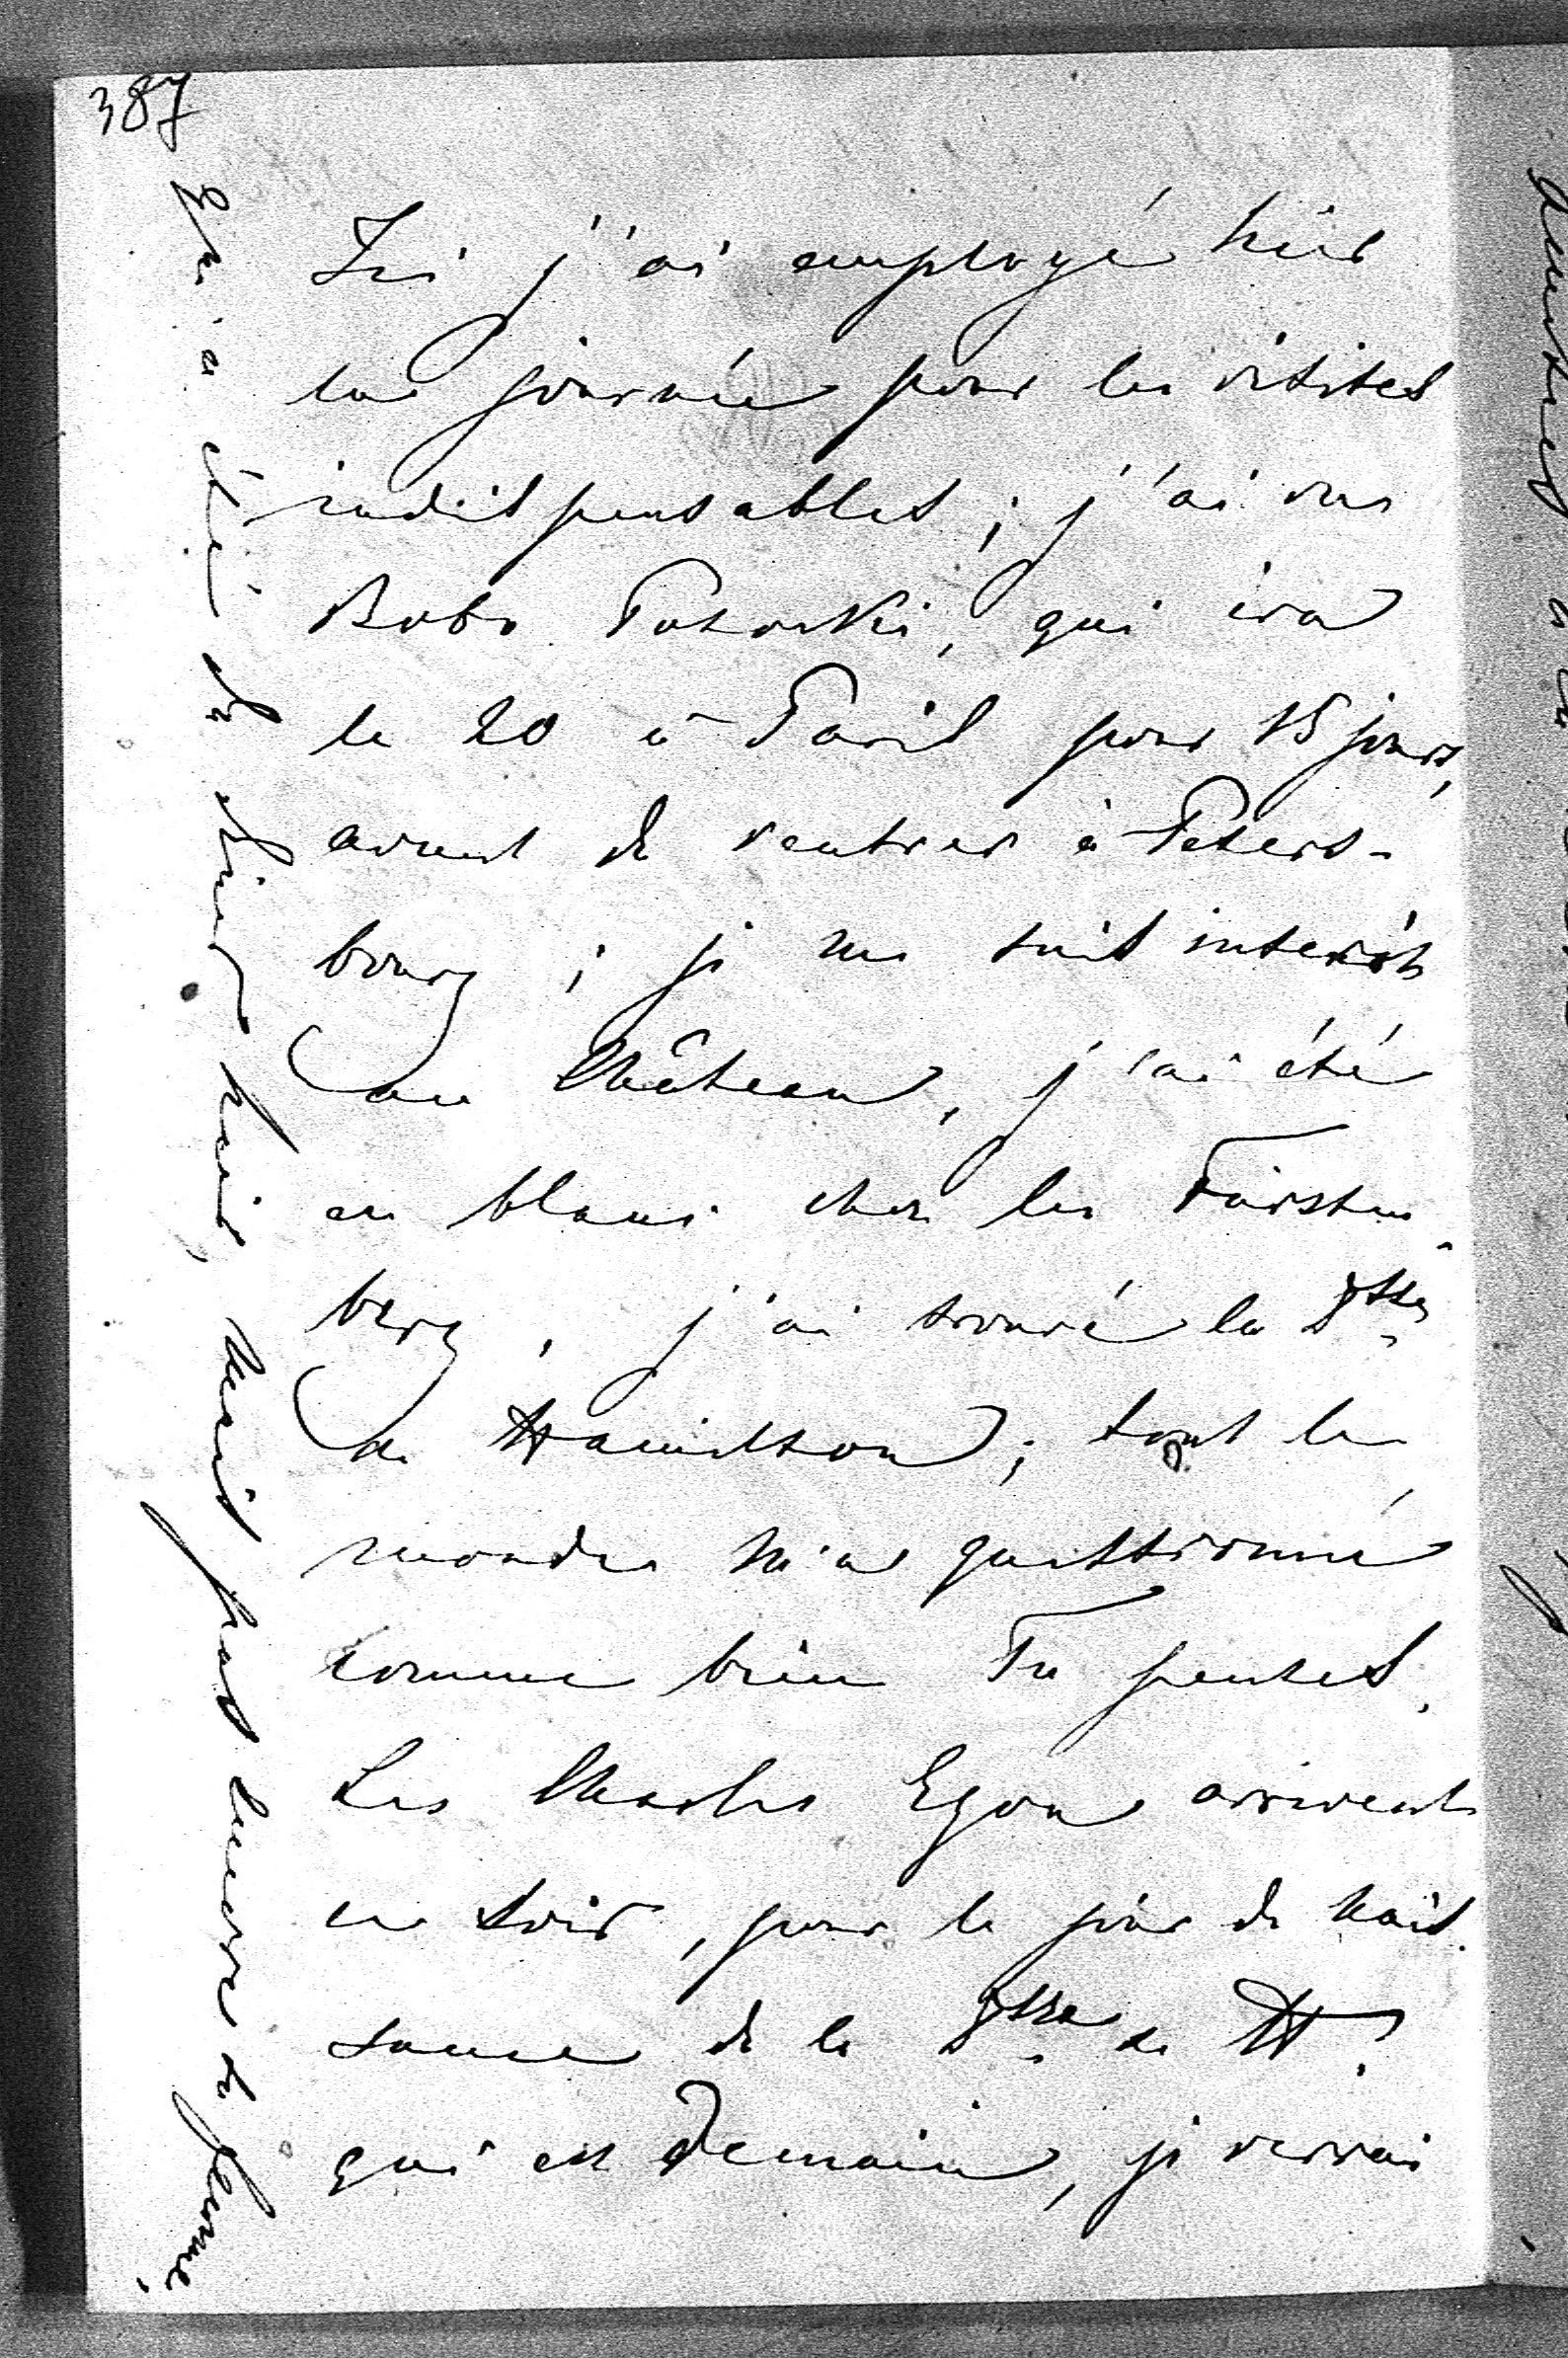 387
Ici j'ai employé hier
la journée pour les visites
indispensables ; j'ai vu
Bobo Potocki, qui ira
le 20 à Paris pour 15 jours,
avant de rentrer à Peters-
bourg ; je me suis inscrit
au Château, j'ai été
en blanc chez les Fürsten-
berg, j'ai trouvé la Dsse
de Hamilton ; tout le
monde m'a questionné
comme bien Tu penses.
Les Charles Egon arrivent
ce soir, pour le jour de nais-
sance de la Dsse de H.
qui est demain, je verrai
a été du dîner hier, mais pas encore sa femme.